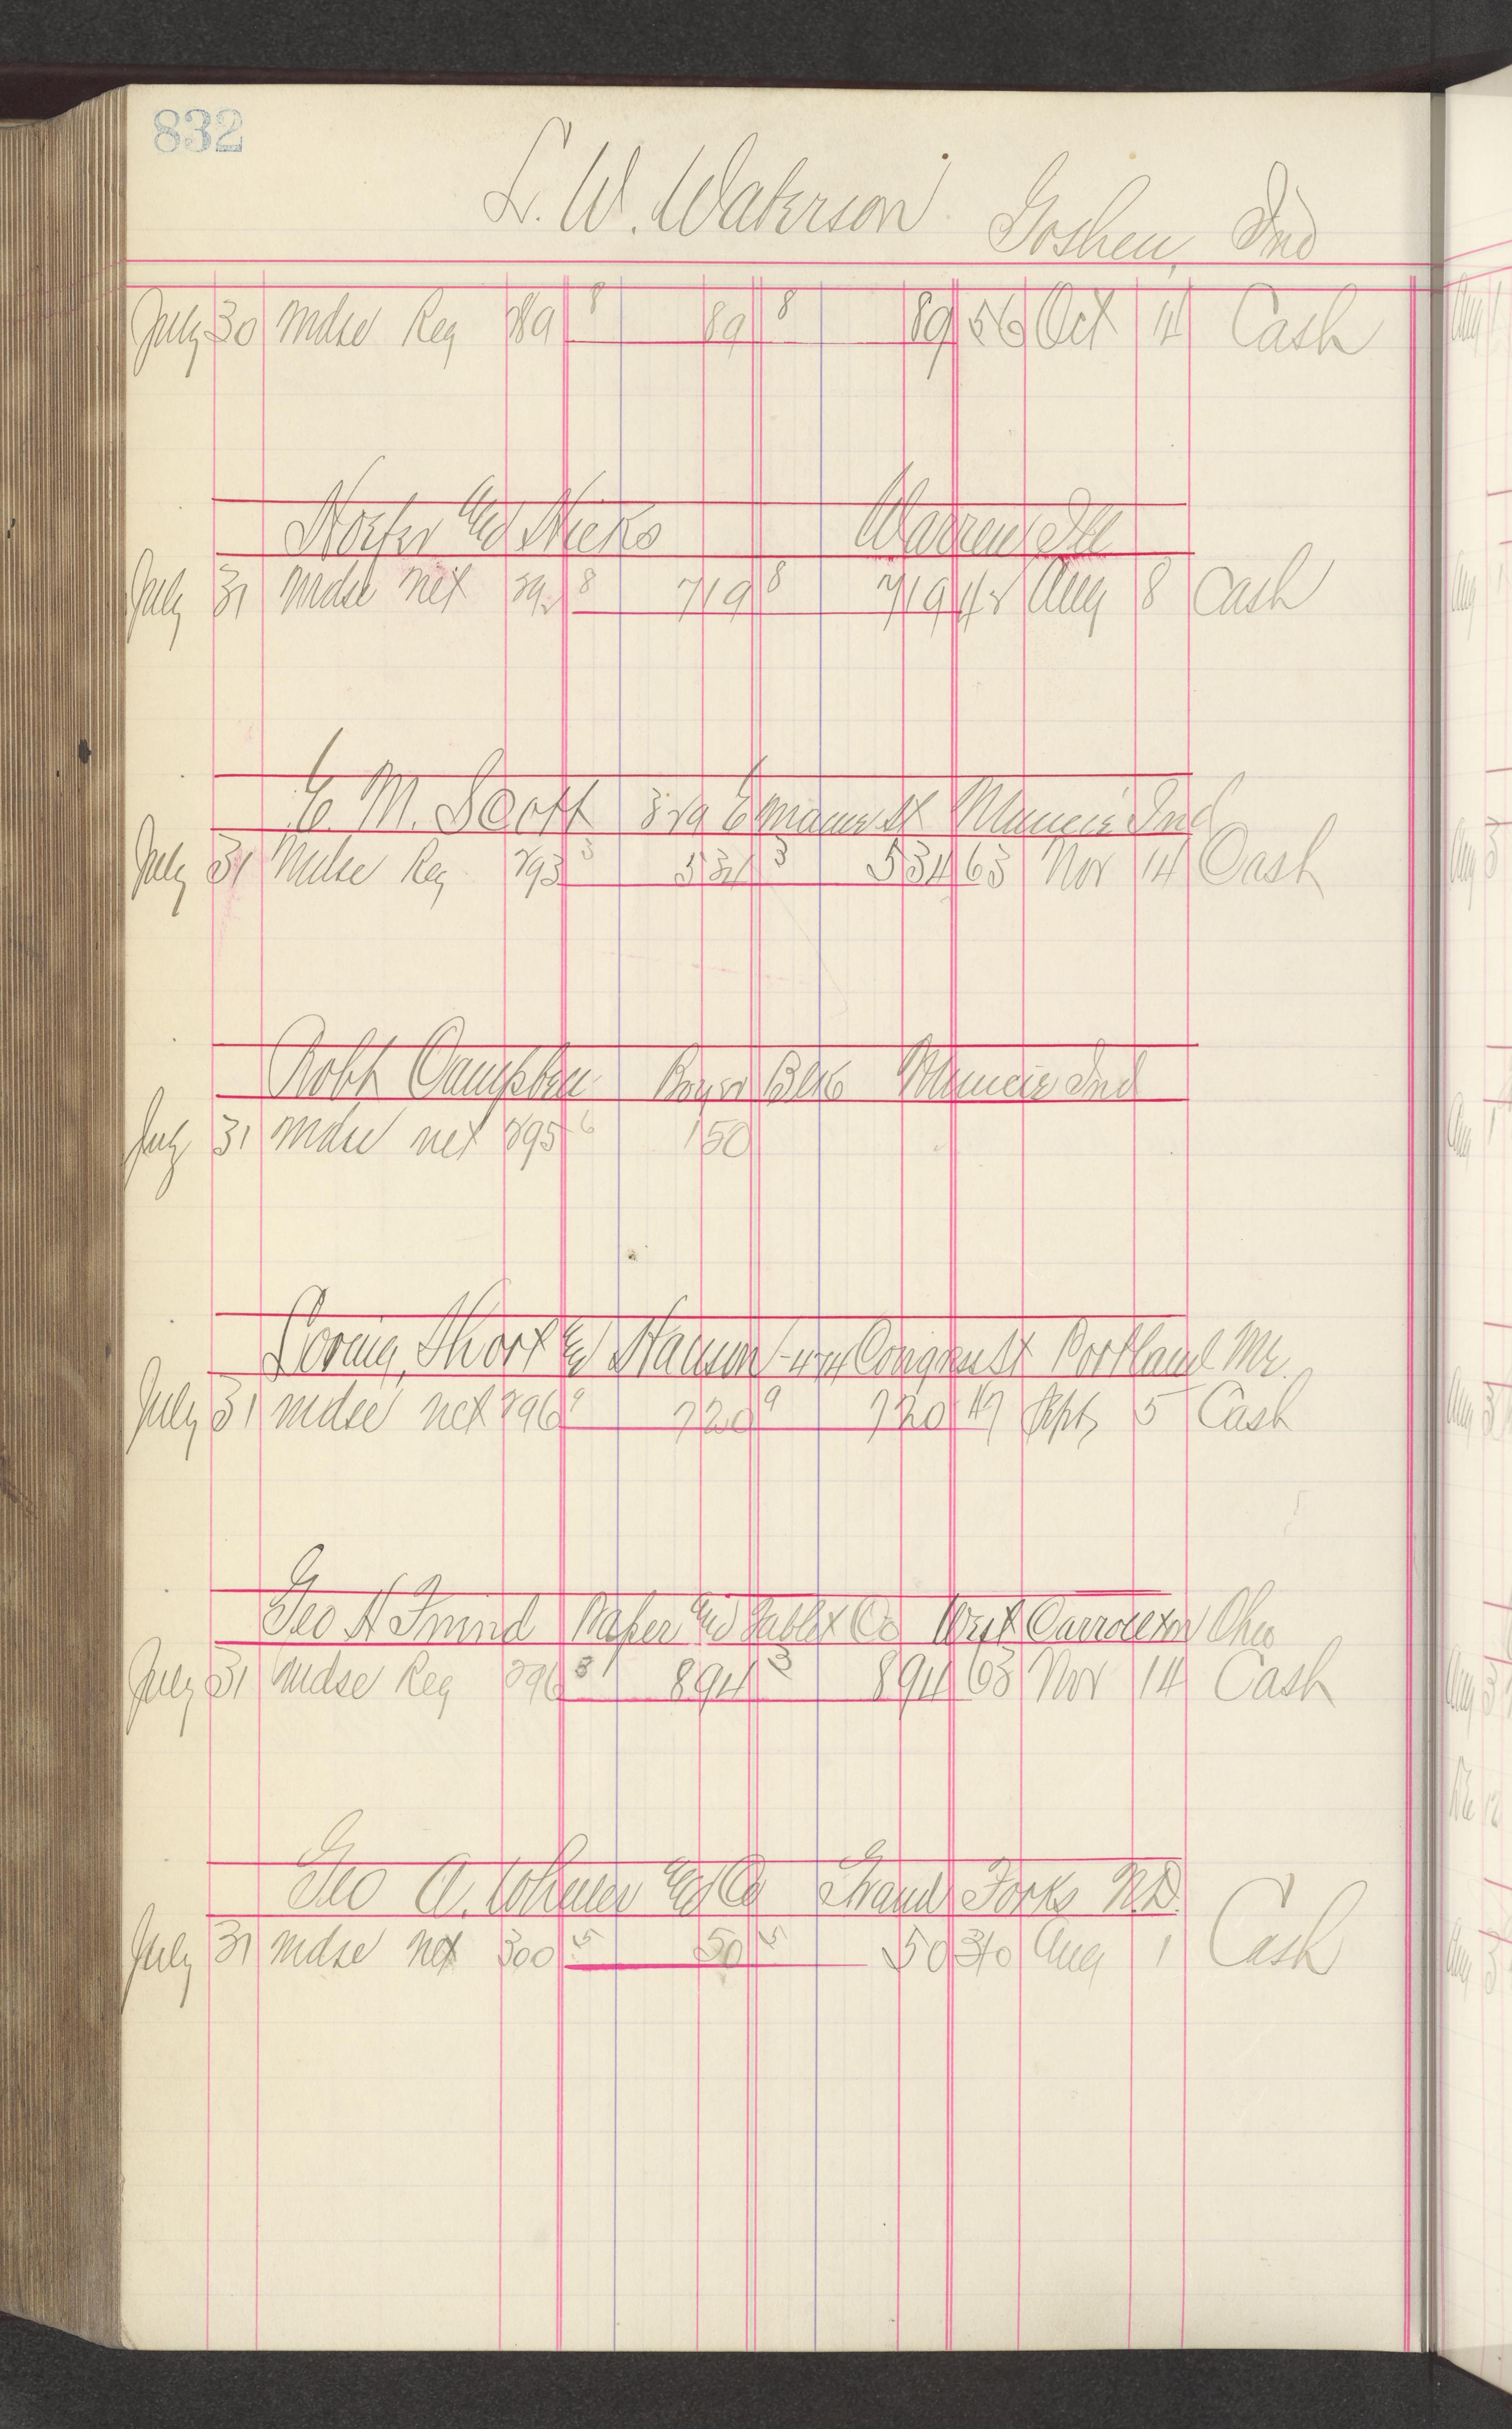 832
L. W. Waterson Goshen, Ind
July 30 mdse Reg 89 8 89 8 89 56 Oct 4 Cash
and Hicks Warren Ill
July 31 mdse net 8 719 8 719 42 Aug 8 Cash
C. M. Scott 329 E St Muncie Ind
July 31 mdse Reg 293 3 534 3 534 63 Nov 14 Cash
Robt Campbell Boyce Blk Muncie Ind
July 31 mdse net 295 6 150
Loring, Short and Harmon 474 Congress St Portland Me.
July 31 mdse net 296 9 720 9 720 47 Sept 5 Cash
Geo H Friend Paper and Tablet Co West Carrollton Ohio
July 31 mdse Reg 296 894 3 894 63 Nov 14 Cash
Geo A. and Co Grand Forks N.D.
July 31 mdse net 300 5 50 5 50 30 Aug 1 Cash